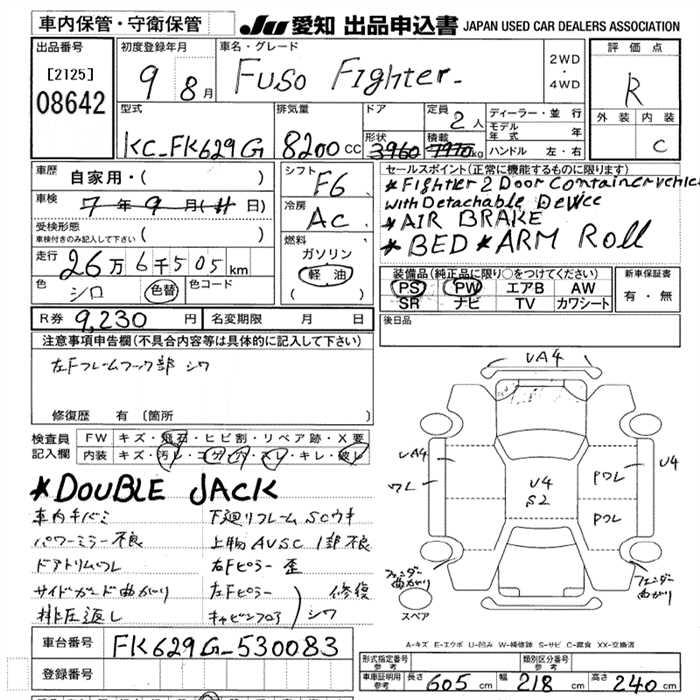 車内保管・守衛保管
JU 愛知 出品申込書 JAPAN USED CAR DEALERS ASSOCIATION
出品番号
[2125]
08642
初度登録年月
9 8月
車名・グレード
FUSO FIGHTER-
2WD
・
4WD
評価点
R
外装 内装
C
型式
KC-FK629G
排気量
8200 CC
ドア
定員
2人
形状 積載
3960 7970 kg
ディーラー・並行
モデル年式 年
ハンドル 左・右
車歴
自家用・( )
車検
7年9月( 日)
受検形態
車検付きのみ記入して下さい ( )
走行
26万6千505km
色
シロ
色替
色コード
シフト
F6
冷房
AC
燃料
ガソリン
軽油
( )
セールスポイント(正常に機能するものに限ります)
*FIGHTER 2 DOOR CONTAINER VEHICLE
WITH DETACHABLE DEVICE
*AIR BRAKE
*BED *ARM ROLL
装備品(純正品に限り○をつけてください)
PS PW エアB AW
SR ナビ TV カワシート
新車保証書
有・無
R券 9,230 円
名変期限 月 日
後日品
注意事項申告欄(不具合内容等は具体的に記入して下さい)
左Fフレームフック部 シワ
修復歴 有(箇所
検査員
記入欄
FW キズ・飛石・ヒビ割・リペア跡・X要
内装 キズ・汚レ・コゲ・穴・スレ・キレ・破レ
*DOUBLE JACK
車内チバミ
パワーミラー不良
ドアトリムワレ
サイドガード曲がり
排圧返し
下廻リフレームSCウキ
上物AVSC 1部不良
右Fピラー 歪
左Fピラー 修復
キャビンフロア シワ
UA4
UA4
ワレ
U4
S2
PワL
PワL
U4
フェンダー
曲がり
フェンダー
曲がり
スペア
A-キズ E-エクボ U-凹み W-補修跡 S-サビ C-腐食 XX-交換済
車台番号
FK629G-530083
登録番号
形式指定番号
参考
類別区分番号
参考
車庫証明用
参考
長さ 605 cm 幅 218 cm 高さ 240 cm